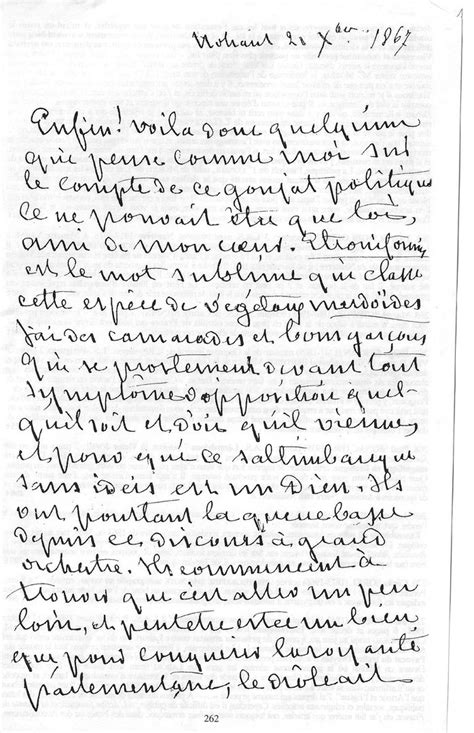 Nohant 20 Xber 1867
Enfin! voila donc quelqu'un
qui pense comme moi sur
le compte de ce goujat politique
Ce ne pouvait être que toi,
ami de mon cœur. Etroniformes
est le mot sublime qui classe
cette espèce de végétaux merdoïdes
J'ai des camarades et bons garçons
qui se prosternent devant tout
symptôme d'opposition quel-
qu'il soit et d'où qu'il vienne,
et pour qui ce saltimbanque
sans idées est un Dieu. Ils
ont pourtant la queue basse
depuis ce discours à grand
orchestre. Ils commencent à
trouver que c'est aller un peu
loin, et peutetre est ce un bien
que pour conquérir la royauté
parlementaire, le drôle ait
262
1